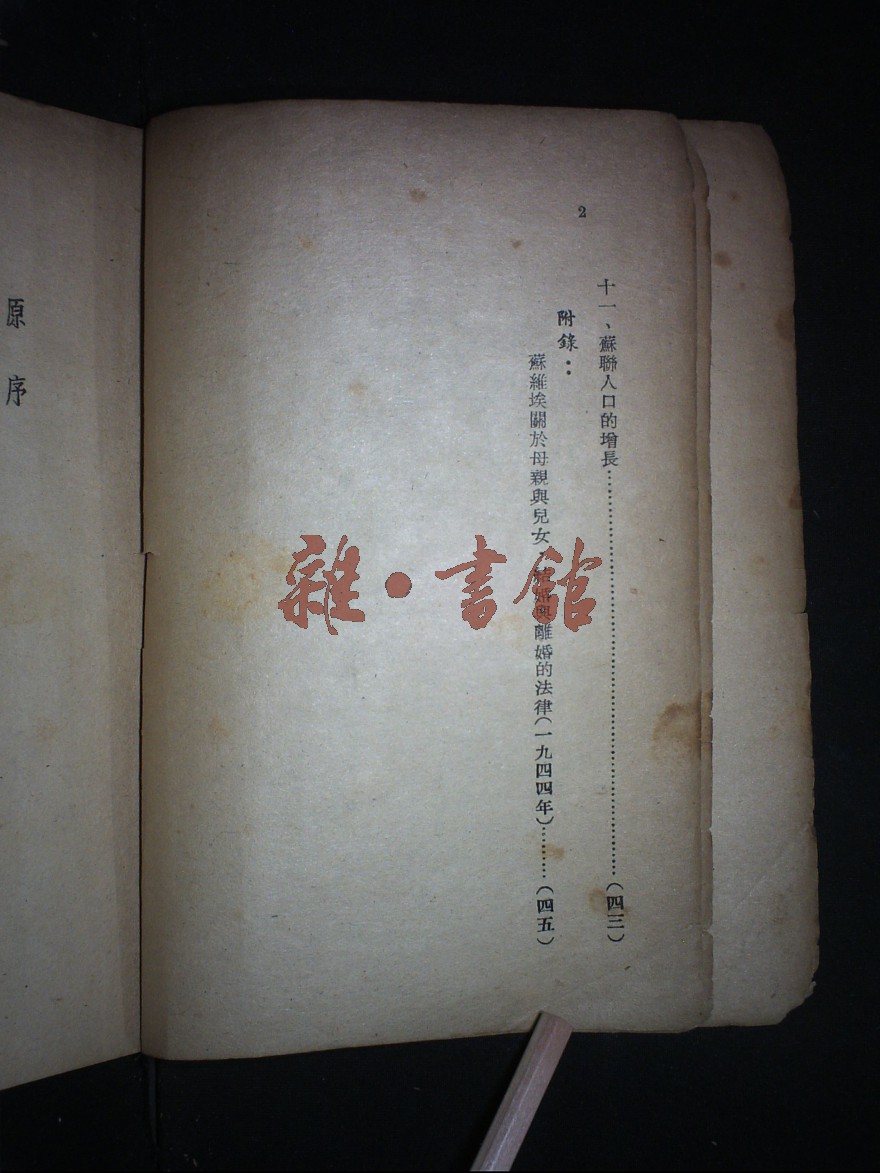 2
十一、蘇聯人口的增長……………………………………(四三)
附錄：
蘇維埃關於母親與兒女、結婚與離婚的法律(一九四四年)………(四五)
原序
雜·書館